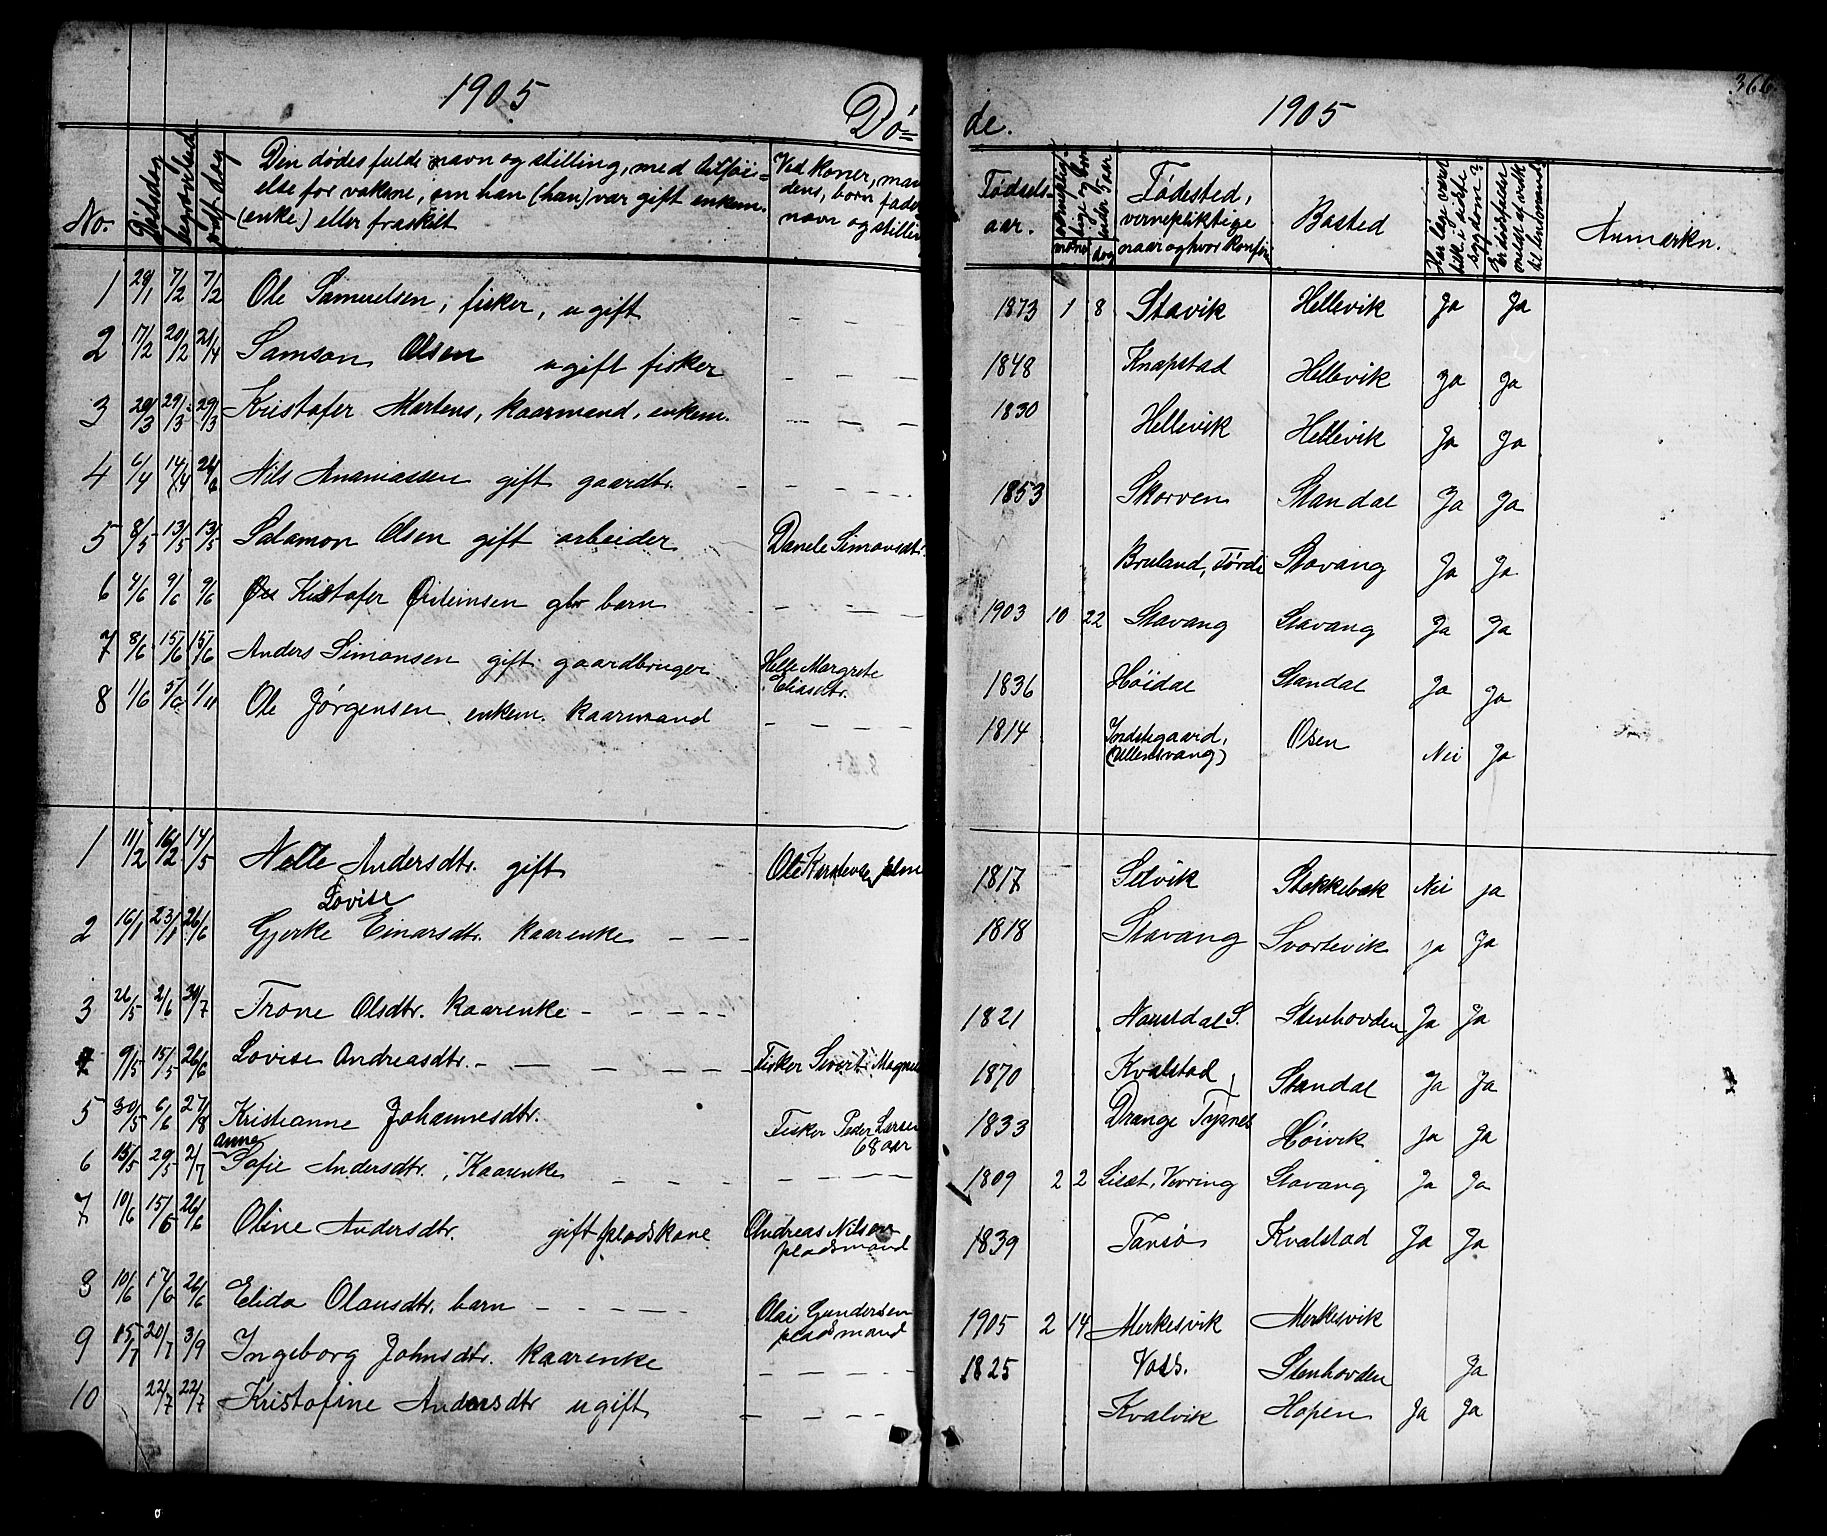 1905 Dö= de. 1905 366.
No. Dödsdag begravelsed. Den dødes fulde navn og stilling, med tilføi= Ved koner, man
else for voksne, om han (hun) var gift enkem. dens, børn faders
(enke) eller fraskilt navn og stilling
Fødsels- aar. Fødested, vernepliktige naar og hvor konfir. Bosted Anmærkn.
1 29/1 7/2 7/2 Ole Samuelsen, fisker, ugift – – – 1873 1 8 Stavik Hellevik Ja Ja
2 17/2 20/2 21/4 Samson Olsen ugift fisker – – – 1848 Knapstad Hellevik Ja Ja
3 29/3 29/3 Kristofer Martens, kaarmand, enkem. – – – 1830 Hellevik Hellevik Ja Ja
4 6/4 14/4 Nils Ananiassen gift gaardbr. – – – – 1853 Skorven Standal Ja Ja
5 8/5 13/5 13/5 Salamon Olsen gift arbeider – Danele Simonsdtr. Bruland, Førde Stavang Ja Ja
6 4/6 9/6 9/6 Kristofer barn – – – 1903 10 22 Stavang Stavang Ja Ja
7 8/6 15/6 15/6 Anders Simonsen gift gaardbruger Helle Margrete
Eliasdtr. 1836 Høidal Standal Ja Ja
8 1/6 5/6 1/11 Ole Jørgensen enkem. kaarmand – – – 1814 Indstegaard,
(Ullensvang) Osen Nei Ja
1 11/2 16/2 14/5 Nelle Andersdtr. gift – Ole 1817 Selvik Stokkebæk Nei ja
Lovise
2 16/1 23/1 26/6 Gjerke Einarsdtr. kaarenke – – – 1818 Stavang Svortevik ja Ja
3 26/5 2/6 30/7 Trone Olsdtr. kaarenke – – – – – 1821 Naustdal S. Stenhovden Ja Ja
9/5 15/5 26/6 Lovise Andreasdtr. – – – – – Fisker Sivert Magnus 1870 Kvalstad, Standal Ja Ja
5 30/5 6/6 27/8 Kristianne Johannesdtr. Fisker Peder Larsen
68 aar 1833 Drange Tysnes Høivik ja Ja
anne
6 15/5 29/5 2/7 Sofie Andersdtr., Kaarenke – – – – – – 1809 2 2 Liset, Vevring Stavang Ja Ja
7 10/6 15/6 26/6 Oline Andersdtr. gift pladskone Andreas Nilsen
pladsmand 1839 Tansø Kvalstad Ja Ja
8 10/6 17/6 26/6 Elida Olausdtr. barn – – – – – Olai Gundersen
pladsmand 1905 2 14 Merkesvik Merkesvik
9 15/7 20/7 3/9 Ingeborg Johnsdtr. kaarenke – – – – 1825 Voss. Stenhovden Ja
10 22/7 22/7 Kristofine Andersdtr ugift – – – – Kvalvik Hopen Ja Ja